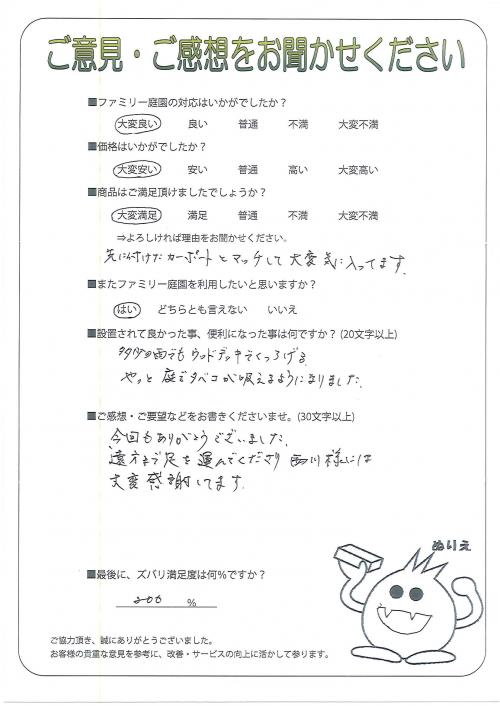 ご意見・ご感想をお聞かせください
■ファミリー庭園の対応はいかがでしたか？
大変良い 良い 普通 不満 大変不満
■価格はいかがでしたか？
大変安い 安い 普通 高い 大変高い
■商品はご満足頂けましたでしょうか？
大変満足 満足 普通 不満 大変不満
⇒よろしければ理由をお聞かせください。
先に付けたカーポートとマッチして大変気に入ってます。
■またファミリー庭園を利用したいと思いますか？
はい どちらとも言えない いいえ
■設置されて良かった事、便利になった事は何ですか？(20文字以上)
多少の雨でもウッドデッキでくつろげる。
やっと庭でタバコが吸えるようになりました。
■ご感想・ご要望などをお書きくださいませ。(30文字以上)
今回もありがとうございました。
遠方まで足を運んでくださり西川様には
大変感謝してます。
ぬりえ
■最後に、ズバリ満足度は何％ですか？
200 %
ご協力頂き、誠にありがとうございました。
お客様の貴重な意見を参考に、改善・サービスの向上に活かして参ります。